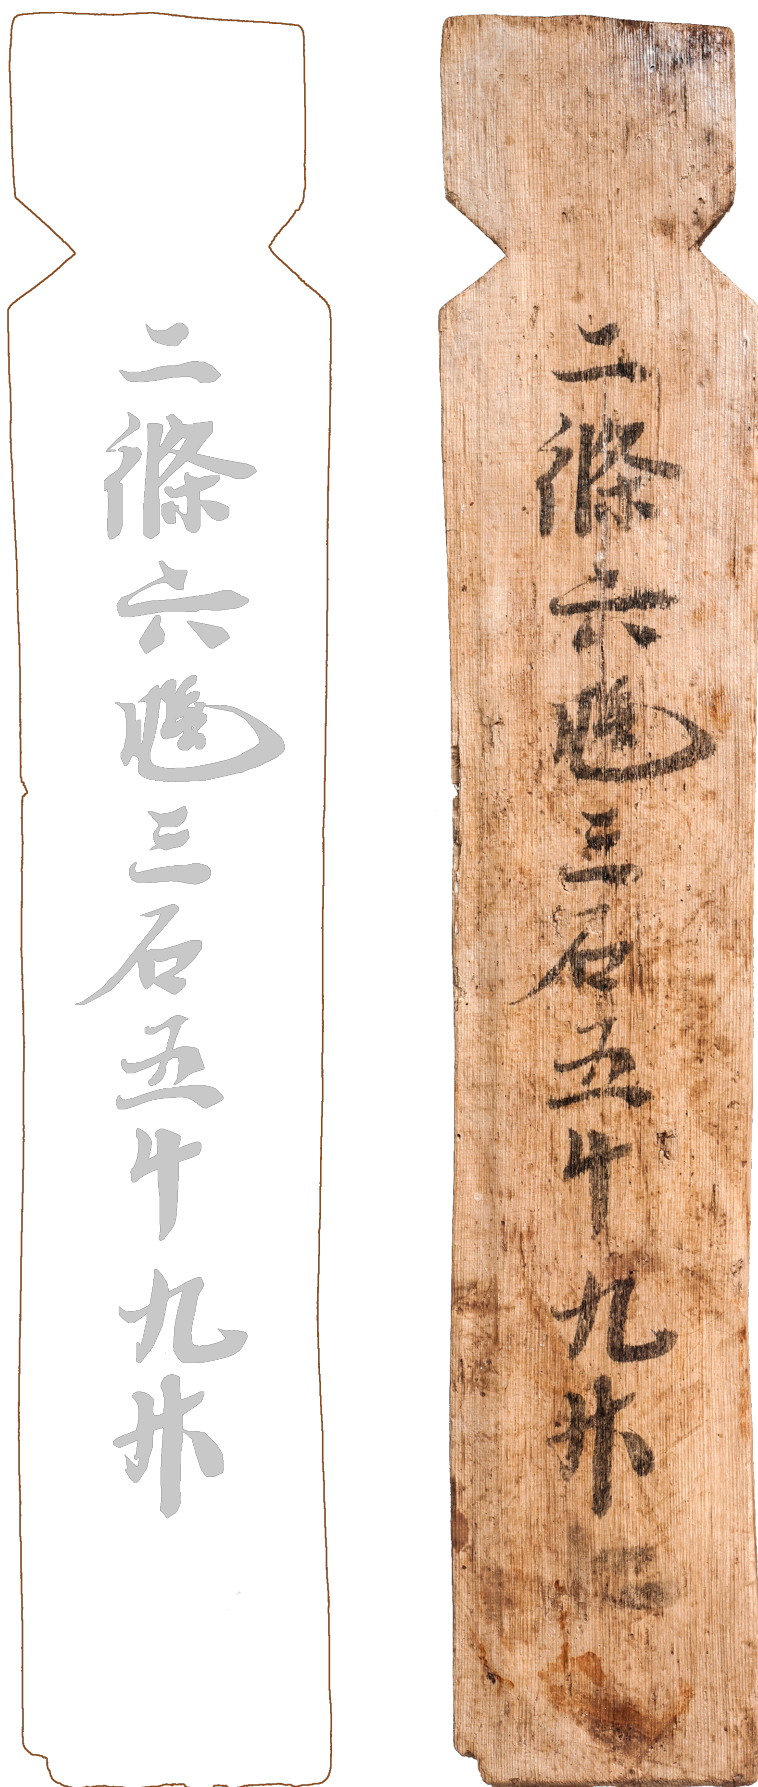 二條六三石五斗九升
二條六三石五斗九升